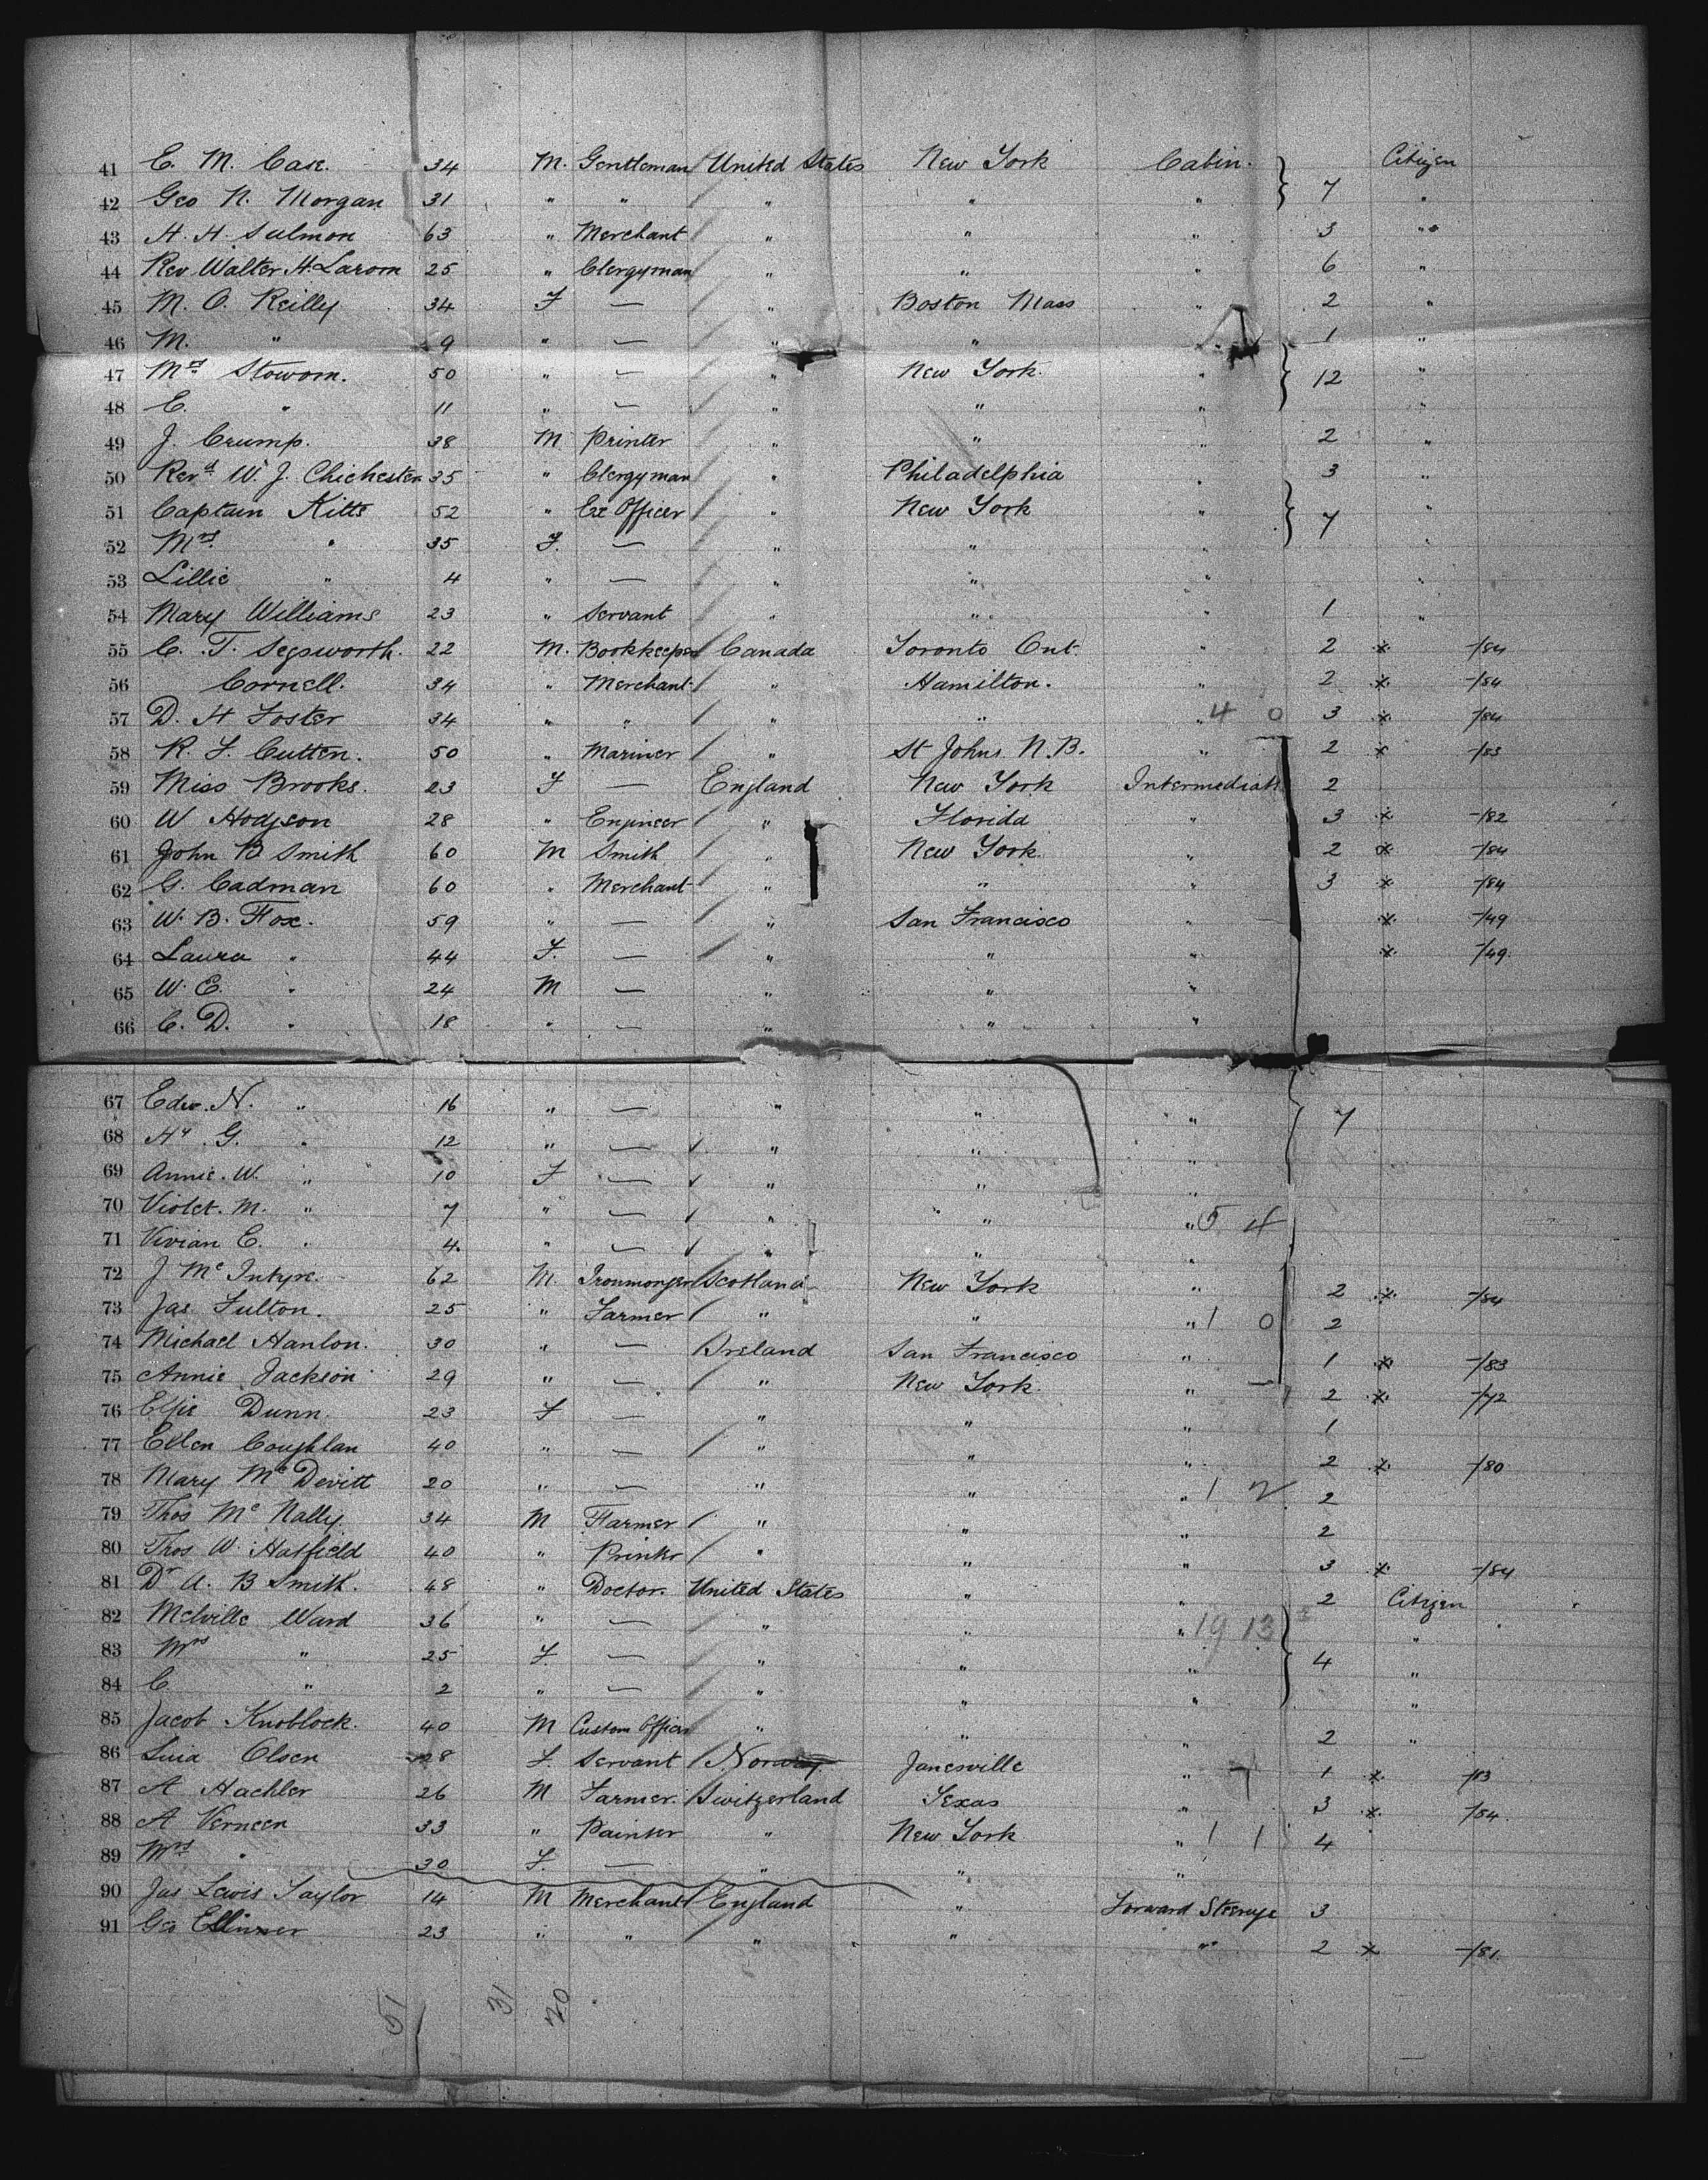 41 E. M. Case. 34 M. Gentleman United States New York Cabin. 7 Citizen
42 Geo N. Morgan 31 " " " " " "
43 H. H. Salmon 63 " Merchant " " " 3 "
44 Rev Walter H. Larom 25 " Clergyman " " " 6 "
45 M. O. Reilly 34 F — " Boston Mass " 2 "
46 M. " 9 " — " " " 1 "
47 Mrs Stowom. 50 " — " New York. " 12 "
48 E. " 11 " — " " " "
49 J. Crump. 38 M Printer " " " 2 "
50 Revd W. J. Chichester 35 " Clergyman " Philadelphia " 3 "
51 Captain Kitts 52 " Ex Officer " New York " 7 "
52 Mrs " 35 F. — " " " "
53 Lillie " 4 " — " " " "
54 Mary Williams 23 " Servant " " " 1 "
55 C. T. Segsworth. 22 M. Bookkeeper Canada Toronto Ont. " 2 x /84
56 Cornell. 34 " Merchant " Hamilton. " 2 x /84
57 D. H Foster 34 " " " " " 4 0 3 x /84
58 R. F. Cutten. 50 " Mariner " St Johns N.B. " 2 x /83
59 Miss Brooks. 23 F — England New York Intermediate 2
60 W Hodgson 28 " Engineer " Florida " 3 x /82
61 John B Smith 60 M Smith " New York. " 2 x /84
62 G. Cadman 60 " Merchant " " " 3 x /84
63 W. B. Fox. 59 " — " San Francisco " x /49
64 Laura " 44 F. — " " " x /49
65 W. E. " 24 M — " " "
66 C. D. " 18 " — " " "
67 Edw. N. " 16 " — " " " 7
68 Hy. G. " 12 " — " " "
69 Annie. W. " 10 F — " " "
70 Violet. M. " 7 " — " " " 5 4
71 Vivian E. " 4. " — " " "
72 J McIntyre. 62 M Ironmonger Scotland New York " 2 x /84
73 Jas Fulton. 25 " Farmer " " " 1 0 2
74 Michael Hanlon. 30 " — Ireland San Francisco " 1 x /83
75 Annie Jackson 29 " — " New York. " 2 x /72
76 Effie Dunn. 23 F — " " " 1
77 Ellen Coughlan 40 " — " " " 2 x /80
78 Mary McDevitt 20 " — " " " 1 2 2
79 Thos McNally 34 M Farmer " " " 2
80 Thos W. Hatfield 40 " Printer " " " 3 x /84
81 Dr A. B Smith. 48 " Doctor. United States " " 2 Citizen
82 Melville Ward 36 " — " " " 19 13 "
83 Mrs " 25 F. — " " " 4 "
84 C. " 2 " — " " " "
85 Jacob Knoblock. 40 M Custom Officer " " " 2 "
86 Luia Olsen 28 F. Servant Norway Janesville " 1 1 x /83
87 A Hachler 26 M Farmer. Switzerland Texas " 3 x /84
88 A Verneer 33 " Painter " New York " 1 1 4
89 Mrs " 30 F. — " " "
90 Jas Lewis Taylor 14 M Merchant England " Forward Steerage 3
91 Geo Ellinxer 23 " " " " " 2 x /81
51 31 20